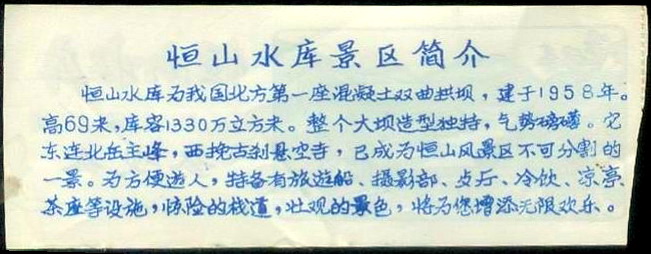 恒山水库景区简介
恒山水库为我国北方第一座混凝土双曲拱坝，建于1958年。
高69米，库容1330万立方米。整个大坝造型独特，气势磅礴。它
东连北岳主峰，西挽古刹悬空寺，已成为恒山风景区不可分割的
一景。为方便游人，特备有旅游船、摄影部、点厅、冷饮、凉亭
茶座等设施，惊险的栈道，壮观的景色，将为您增添无限欢乐。